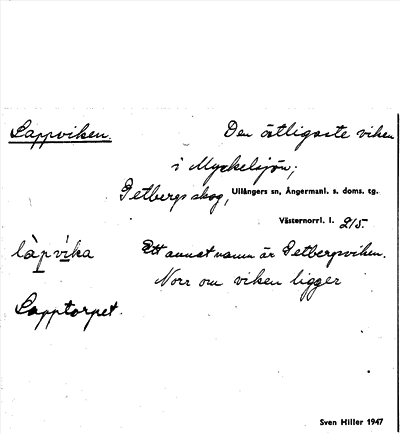 Lappviken. Den östligaste viken
i Myckelsjön;
Getbergs skog, Ullångers sn, Ångermanl. s. doms. tg.
Västernorrl. l. 215.
làpvíka Ett annat namn är Getbergsviken.
Norr om viken ligger
Lapptorpet.
Sven Hiller 1947